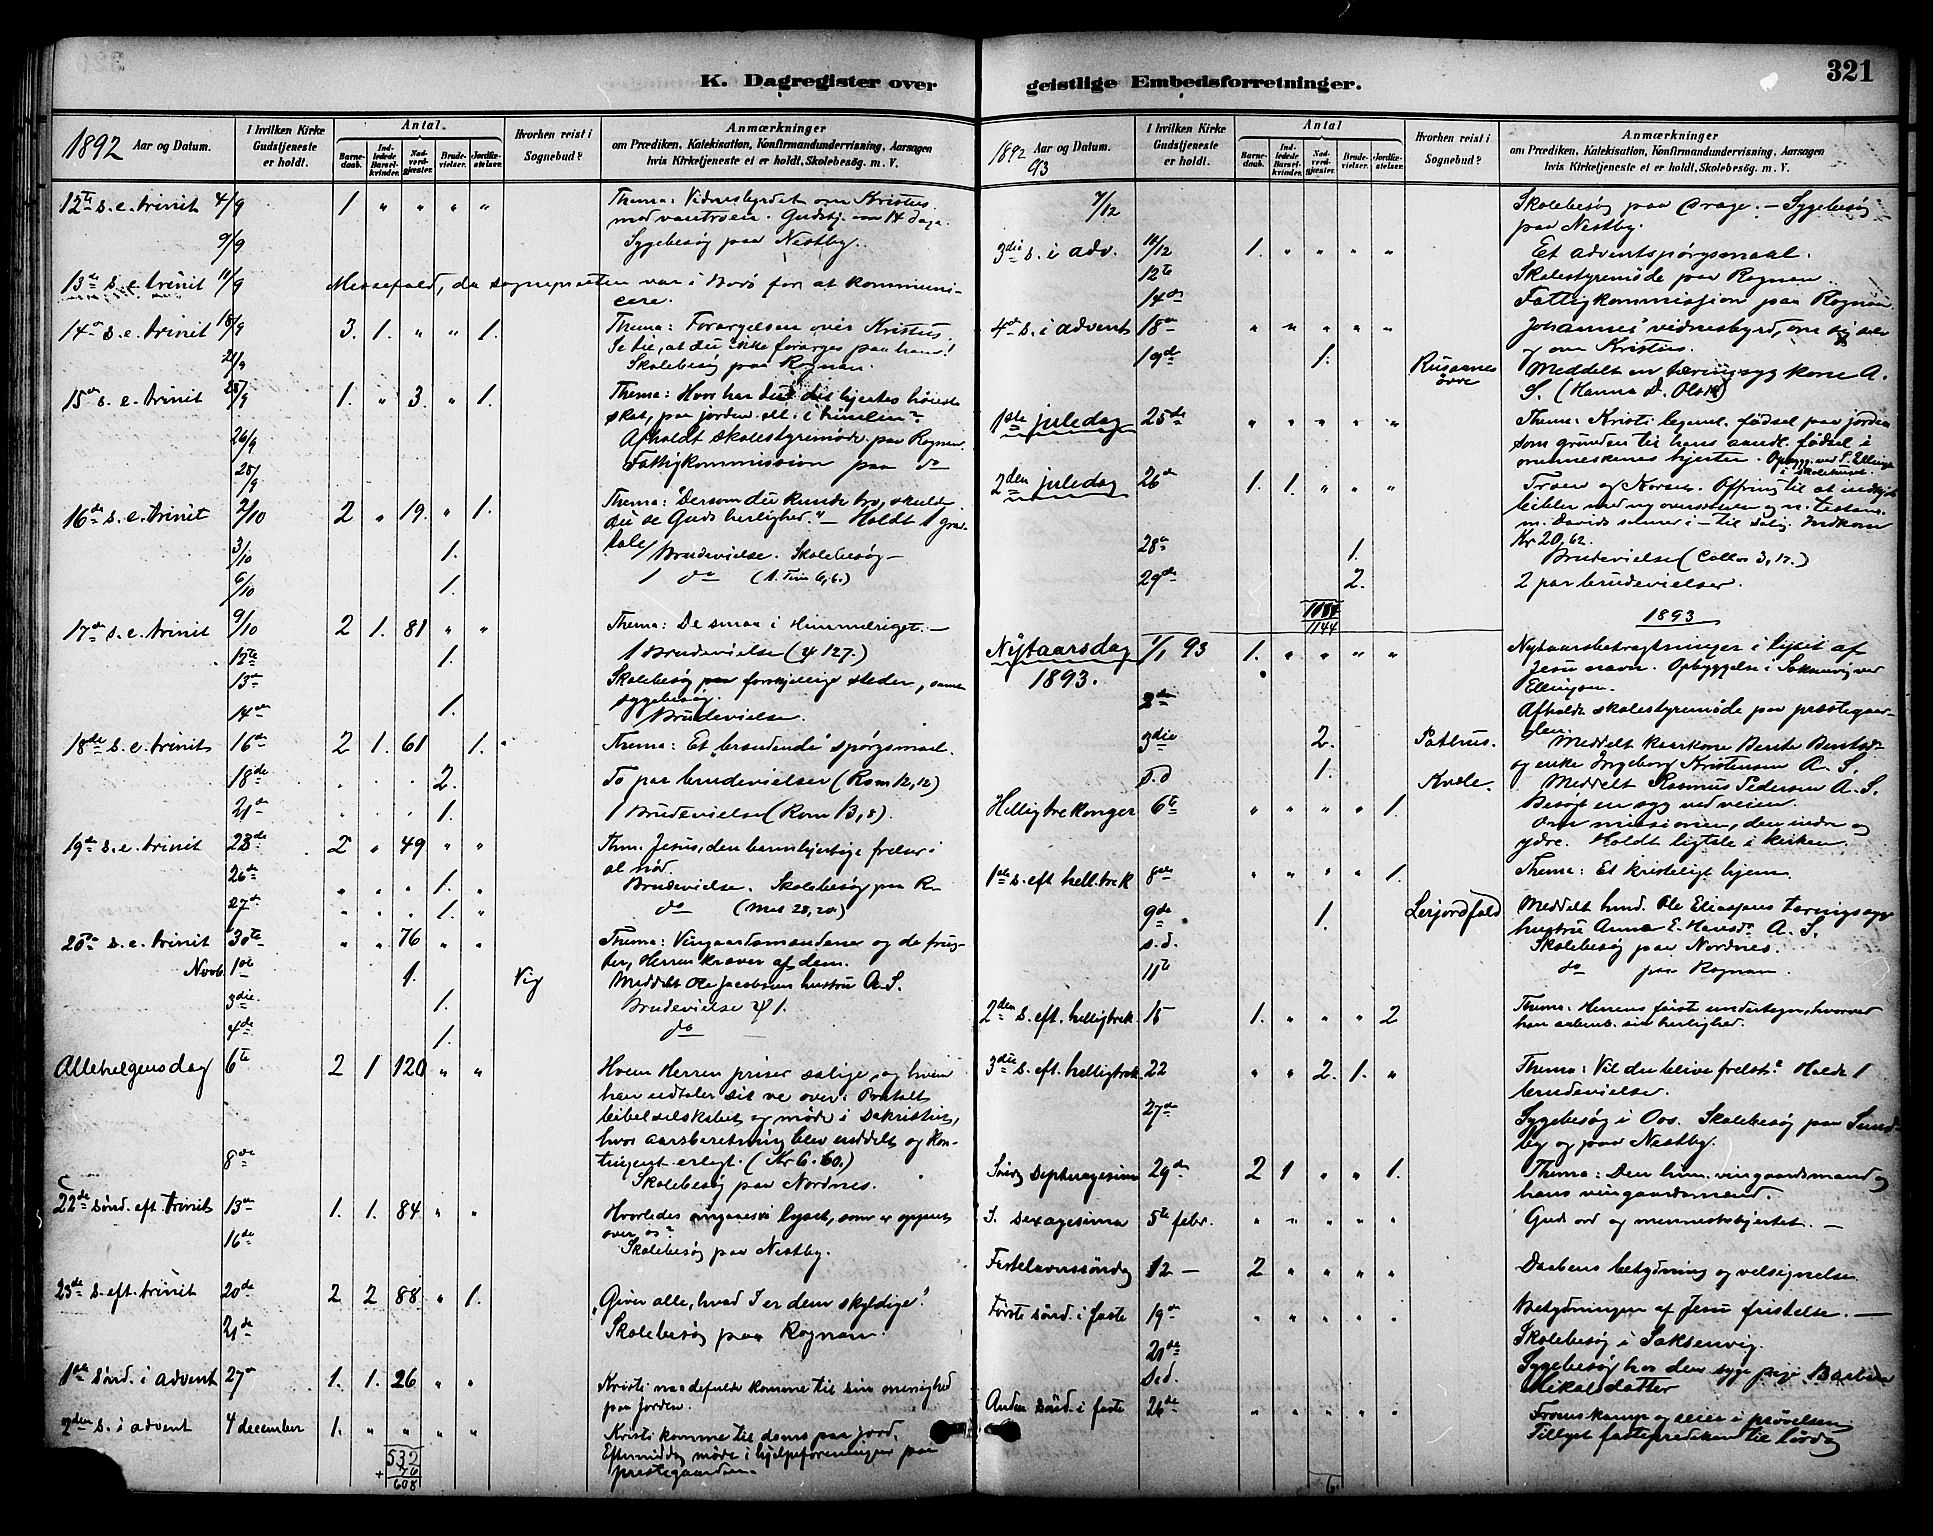 K. Dagregister over
geistlige Embedsforretninger.
321
1892 Aar og Datum.
I hvilken Kirke Gudstjeneste er holdt.
Antal.
Barnedaab.
Indledede Barselkvinder.
Nadverdgjæster.
Brudevielser.
Jordfæstelser.
Hvorhen reist i Sognebud?
Anmærkninger
om Prædiken, Katekisation, Konfirmandundervisning, Aarsagen
hvis Kirketjeneste ei er holdt, Skolebesøg m. V.
12te s. e. trinit 4/9 1 " " " " Thema: Vidnesbyrdet om Kristus
mod vantroen. Gudstj. om 14 dage.
9/9 Sygebesøg paa Nestby.
13de s. e. trinit 11/9 Messefald, da sognepresten var i Bodø for at kommuni-
cere.
14de s. e. trinit 18/9 3. 1. " " 1. Thema: Forargelsen over Kristus.
Se til, at du ikke forarges paa ham!
21/9 Skolebesøg paa Rognan.
15de s. e. trinit 25/9 1. " 3. " 1. Thema: Hvor har du dit hjertes høieste
skat, paa jorden ell. i himlen?
26/9 Afholdt skolestyremøde paa Rognan.
28/9 Fattigkommission paa do
16de s. e. trinit 2/10 2 " 19. " 1. Thema: "Dersom du kunde tro, skulde
du se Guds herlighed." — Holdt 1 grav-
tale
3/10 1. 1 Brudevielse. Skolebesøg —
6/10 1. 1 do (1. Tim 6,6.)
17de s. e. trinit 9/10 2 1. 81 " " Thema: De smaa i Himmeriget. —
12te 1. 1 Brudevielse (ψ 127.)
13de Skolebesøg paa forskjellige steder, samt
sygebesøg.
14de 1. 1 Brudevielse.
18de s. e. trinit 16de 2 1. 61 1. Thema: Et "brændende" spørgsmaal.
18de 2. To par brudevielser (Rom 12,12)
21de 1. 1 Brudevielse (Rom 13,8).
19de s. e. trinit 23de 2 " 49 " " Thm. Jesus, den barmhjertige frelser i
al nød.
26de " " " 1. " Brudevielse. Skolebesøg paa R—
27de " " " 1. " do (Mat 28,20.)
20de s. e. trinit 30te " " 76 " " Thema: Vingaardsmændene og de frug-
ter, Herren kræver af dem.
Novb. 1ste 1. Vig Meddelt Ole Jacobsens hustru A. S.
3die. 1. Brudevielse ψ 1.
4de 1. do
Allehelgensdag 6te 2 1 120 " " Hvem Herren priser salige, og hvem
han udtaler sit ve over. Omtalt
bibelselskabet og møde i Sakristiet,
hvor aarsberetning blev meddelt og kon-
tingent erlagt. (Kr 6.60.)
8de Skolebesøg paa Nordnes.
22de sønd. eft. trinit 13de 1. 1. 84 " " Hvorledes vi lyset, som er opgaaet
over os?
16de Skolebesøg paa Nestby.
23de s. eft. trinit 20de 2 2 88 " 1. „Giver alle, hvad I er dem skyldige".
21de Skolebesøg paa Rognan.
1ste sønd. i advent 27de 1. 1. 26 " " Kristi naadefulde komme til sin menighed
paa jorden.
2den s. i advent 4 december 1. " " " " Kristi komme til doms paa jord.
Eftermiddag møde i hjelpeforeningen paa
prestegaarden.
532
+ 76
608
1892 93 Aar og Datum.
I hvilken Kirke Gudstjeneste er holdt.
Antal
Barnedaab.
Indledede Barselkvinder.
Nadverdgjæster.
Brudevielser.
Jordfæstelser.
Hvorhen reist i Sognebud?
Anmærkninger
om Prædiken, Katekisation, Konfirmandundervisning, Aarsagen
hvis Kirketjeneste ei er holdt, Skolebesøg, m. V.
7/12 Skolebesøg paa Drage. — Sygebesøg
paa Nestby.
3die s. i adv. 11/12 1. " " " " Et adventspørgsmaal.
12te Skolestyremøde paa Rognan
14de Fattigkommission paa Rognan
4de s. i advent 18de " " " " " Johannes' vidnesbyrd, om sig selv
og om Kristus.
19de 1. Rusaanes øvre Meddelt en tæringssyg kone A.
S. (Hanna D. Olsen)
1ste juledag 25de " " " " " Thema: Kristi legeml. fødsel paa jorden
som grunden til hans aandl. fødsel i
menneskenes hjerter. Opbygg. ved P. Ellings.
i skolehuset.
2den juledag 26de 1. 1. " " " Troen og Korset. Offring til at indkjøbe
bibler med ny oversættelse og n. testam.
m. Davids salmer i — til salg. Indkom
Kr 20,62.
28de 1. Brudevielse (Collos 3,17.)
29de 2. 2 par brudevielser.
1144
1893
Nytaarsdag 1/1 93 1. " " " " Nytaarsbetragtninger i lyset af
1893.
Jesu navn. Opbyggelse i Saksenvig ved
Ellingsen.
2den Afholdt skolestyremøde paa prestegaar-
den.
3die 2. Pothus. Meddelt kaarkone Bente Bentsd.
og enke Ingeborg Kristensen A. S.
s.d 1. Kvæle. Meddelt Rasmus Pedersen A. S.
Besøgt en syg ved veien.
Helligtrekonger 6te " " " " 1. Om missionen, den indre og
ydre. Holdt ligtale i kirken.
1ste s. eft hell. trek 8de " " " " 1. Thema: Et kristeligt hjem
9de 1. Leijordfald Meddelt husd. Ole Eliassens tæringssyge
hustru Anna E. Hansd. A. S.
s.d. Skolebesøg paa Nordnes.
11te do paa Rognan.
2den s. eft. helligtrek. 15 1. " " " 2 Thema: Herrens første undertegn, hvorved
han aabenb. sin herlighed.
3die s. eft. helligtrek. 22 " " 2. 1. " Thema: Vil du blive frelst? Holdt 1
brudevielse.
27de Sygebesøg i Oos. Skolebesøg paa Sund-
by og paa Nestby.
Sønd. Septuagesima 29de 2 1 " " 1. Thema: Den him. vingaardsmand og
hans vingaardsmænd.
S. sexagesima 5te febr. " " " " " Guds ord og menneskehjertet. —
Fastelavnssøndag 12 — 2 " " " " Daabens betydning og velsignelse.
Første sønd. i faste 19de " " " " " Betydningen af Jesu fristelse. —
20de Skolebesøg i Saksenvig.
s.d. Sygebesøg hos den syge pige Barbra
Mikalsdatter
Anden sønd. i faste 26de " " " " " Troens kamp og seier i prøvelsen
Tillyst fasteprediken til lørdag
6